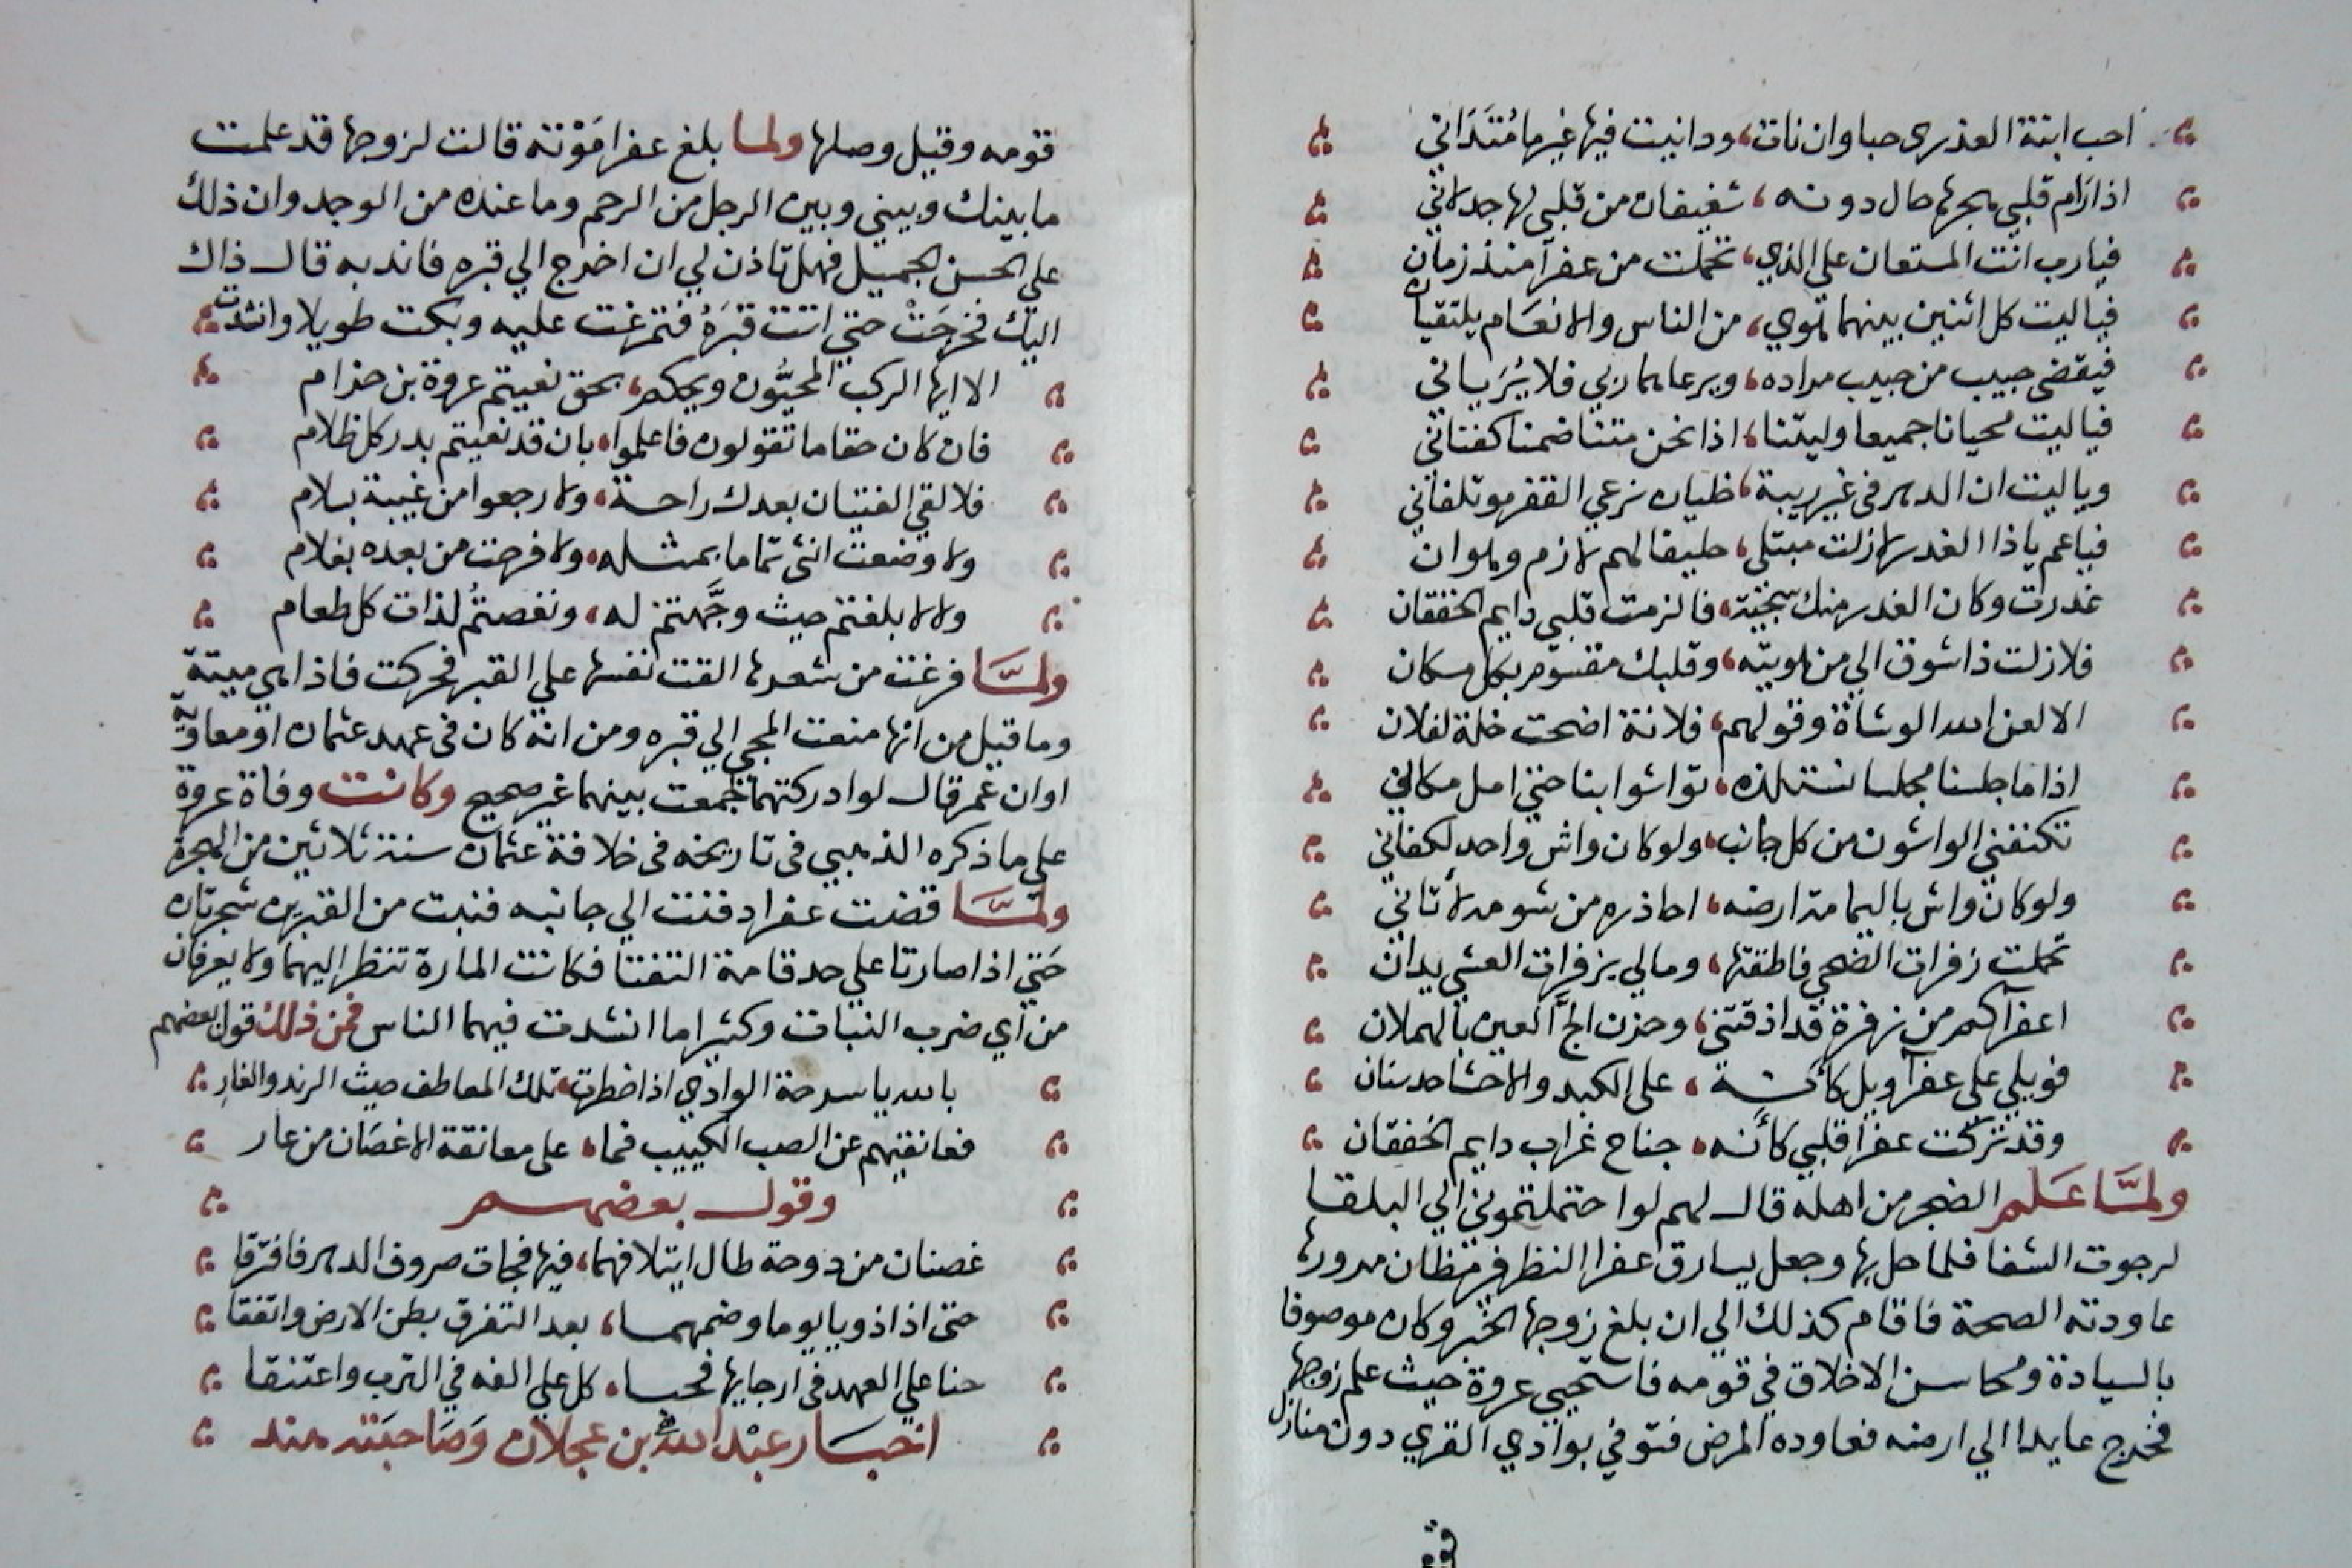 احب ابنة العذري حبا وان نات، ودانيت فيها غير ما متداني
اذا رام قلبي هجرها حال دونه، شفيقان من قلبي لها جدلاني
فيارب انت المستعان علي الذي، تحملت من عفرآ منذ زمان
فياليت كل اثنين بينهما هوي، من الناس والانعام يلتقيان
فيقضي حبيب من حبيب مراده، ويرعاهما ربي فلا يريان
فياليت محيانا جميعا وليتنا، اذا نحن متنا ضمنا كفنان
وياليت ان الدهر في غير ريبة، خليان نرعي القفر موتلفان
فياعم ياذا الغدر لازلت مبتلي، حليفا لهم لازم وهوان
غدرت وكان الغدر منك سجية، فالزمت قلبي دايم الخفقان
فلازلت ذا شوق الي من هويته، وقلبك مقسوم بكل مكان
الا لعن الله الوشاة وقولهم، فلانة اضحت خلة لفلان
اذا ما جلسنا مجلسا نستلذه، تواشوا بنا حتي امل مكاني
تكنفني الواشون من كل جانب، ولو كان واش واحد لكفاني
ولو كان واش باليمامة ارضه، احاذره من شومه لأتاني
تحملت زفرات الضحي فاطقتها، ومالي بزفرات العشي يدان
اعفرآ كم من زفرة قد اذقتني، وحزن الج العين بالهملان
فويلي علي عفرآ ويل كأنه، علي الكبد والاحشا حد سنان
وقد تركت عفرا قلبي كأنه، جناح غراب دايم الخفقان
ولما علم الضجر من اهله قال لهم لو احتملتموني الي البلقا
لرجوت الشفا فلما حل بها وجعل يسارق عفرا النظر في مظان مرورها
عاودته الصحة فاقام كذلك الي ان بلغ زوجها الخبر وكان موصوفا
بالسيادة ومحاسن الاخلاق في قومه فاستحيي عروة حيث علم زوجها
فخرج عايدا الي ارضه فعاوده المرض فتوفي بوادي القري دون منازل
قومه
قومه وقيل وصلها ولما بلغ عفرا موته قالت لزوجها قد علمت
ما بينك وبيني وبين الرجل من الرحم وما عنده من الوجد وان ذلك
علي الحسن الجميل فهل تاذن لي ان اخرج الي قبره فاندبه قال ذاك
اليك فخرجت حتي اتت قبره فتمرغت عليه وبكت طويلا وانشدت
الا ايها الركب المحيون ويحكم، بحق نعيتم عروة بن حزام
فان كان حقا ما تقولون فاعلموا، بان قد نعيتم بدر كل ظلام
فلا لقي الفتيان بعدك راحة، ولا رجعوا من غيبة بسلام
ولا وضعت انثي تماما بمثله، ولا فرحت من بعده بغلام
ولا لا بلغتم حيث وجهتم له، ونغصتم لذات كل طعام
ولما فرغت من شعرها القت نفسها علي القبر فحركت فاذا هي ميتة
وما قيل من انها منعت المجي الي قبره ومن انه كان في عهد عثمان او معاوية
او ان عمر قال لو ادركتهما لجمعت بينهما غير صحيح وكانت وفاة عروة
علي ما ذكره الذهبي في تاريخه في خلافة عثمان سنة ثلاثين من الهجرة
ولما قضت عفرا دفنت الي جانبه فنبت من القبرين شجرتان
حتي اذا صارتا علي حد قامة التفتا فكانت المارة تنظر اليهما ولا يعرفان
من اي ضرب النبات وكثيرا ما انشدت فيهما الناس فمن ذلك قول بعضهم
بالله يا سرحة الوادي اذا خطرت، تلك المعاطف حيث الرند والغار
فعانقيهم عن الصب الكييب فما، علي معانقة الاغصان من عار
وقول بعضهم
غصنان من دوحة طال ايتلافهما، فيها فجات صروف الدهر فافترقا
حتي اذا ذويا يوما وضمهما، بعد التفرق بطن الارض واتفقا
حنا علي العهد في ارجايها فحسا، كل علي الفه في الترب واعتنقا
اخبار عبد الله بن عجلان وصاحبته هند